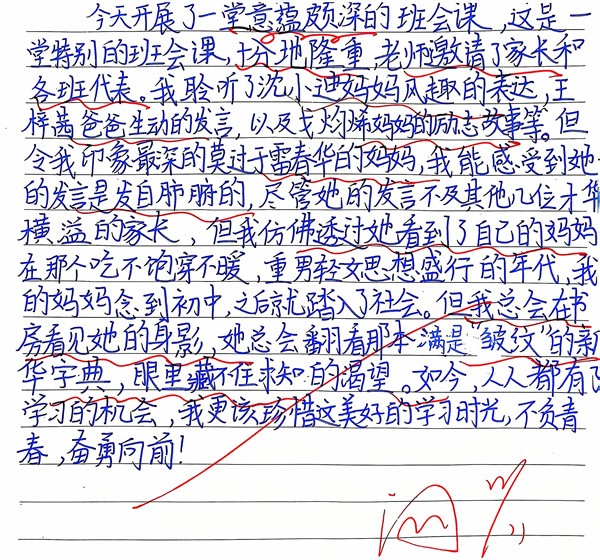 今天开展了一堂意蕴颇深的班会课，这是一
学特别的班会课，十分地隆重，老师邀请了家长和
各班代表。我聆听了沈小迪妈妈风趣的表达，王
梓茜爸爸生动的发言，以及戈灼妈妈的励志故事等。但
令我印象最深的莫过于雷春华的妈妈，我能感受到她
的发言是发自肺腑的，尽管她的发言不及其他几位才华
横溢的家长，但我仿佛透过她看到了自己的妈妈
在那个吃不饱穿不暖，重男轻女思想盛行的年代，我
的妈妈念到初中，之后就踏入了社会。但我总会在书
房看见她的身影，她总会翻看那本满是“皱纹”的新
华字典，眼里藏不住求知的渴望。如今，人人都有
学习的机会，我更该珍惜这美好的学习时光，不负青
春，奋勇向前！
阅